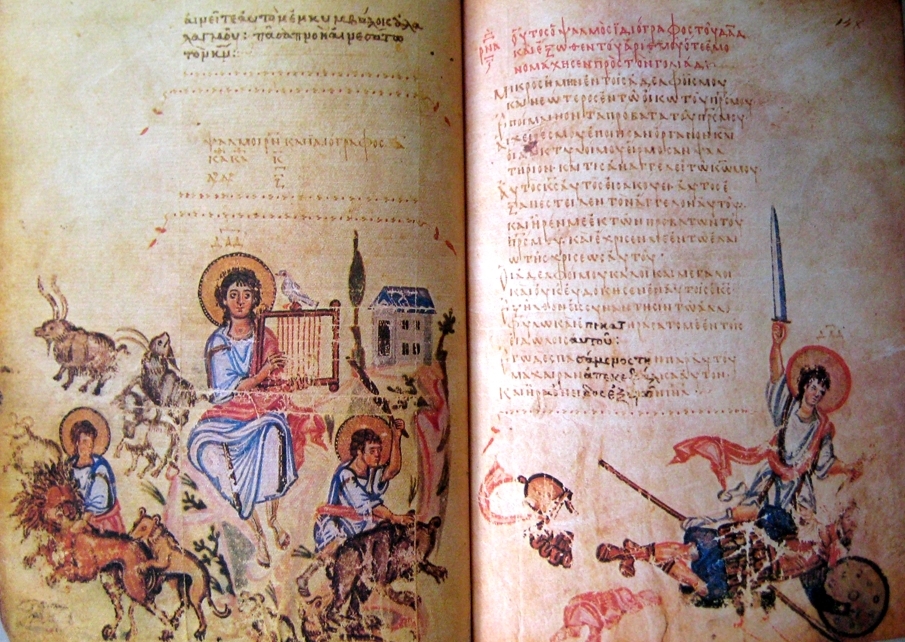 αἰνεῖτε αὐτὸν ἐν κυμβάλοις ἀλα
λαγμοῦ: πᾶσα πνοὴ αἰνεσάτω
τὸν κν:
ψαλμοὶ ρν καὶ ἰδιόγραφος α
ΔΑΔ
οὗτος ὁ ψαλμὸς ἰδιόγραφος τοῦ δαδ
καὶ ἔξωθεν τοῦ ἀριθμοῦ ὅτε ἐμο
νομάχησεν πρὸς τὸν γολιάδ:
Μικρὸς ἤμην ἐν τοῖς ἀδελφοῖς μου
καὶ νεώτερος ἐν τῷ οἴκῳ τοῦ πρς μου
ἐποίμαινον τὰ πρόβατα τοῦ πρς μου
αἱ χεῖρές μου ἐποίησαν ὄργανον καὶ
οἱ δάκτυλοί μου ἥρμοσαν ψαλ
τήριον καὶ τίς ἀναγγελεῖ τῷ κω μου
αὐτὸς κς αὐτὸς εἰσακούει αὐτὸς ἐ
ξαπέστειλεν τὸν ἄγγελον αὐτοῦ
καὶ ἦρέν με ἐκ τῶν προβάτων τοῦ
πρς μου καὶ ἔχρισέν με ἐν τῷ ἐλαί
ῳ τῆς χρίσεως αὐτοῦ
Οἱ ἀδελφοί μου καλοὶ καὶ μεγάλοι
καὶ οὐκ εὐδόκησεν ἐν αὐτοῖς κς
ἐξῆλθον εἰς συνάντησιν τῷ ἀλλο
φύλῳ καὶ ἐπικατηράσατό με ἐν τοῖς
εἰδώλοις αὐτοῦ:
Ἐγὼ δὲ σπασάμενος τὴν παρ αὐτοῦ
μάχαιραν ἀπεκεφάλισα αὐτὸν
καὶ ἦρα ὄνειδος ἐξ
ΔΑΔ